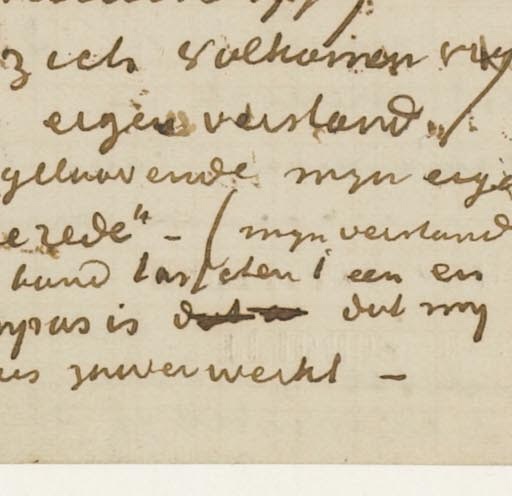 zich volkomen vry
eigen verstand„
geloovende myn eige
e rede" - ( myn verstand
een en
mpas is dat my
us zuiver werkt -